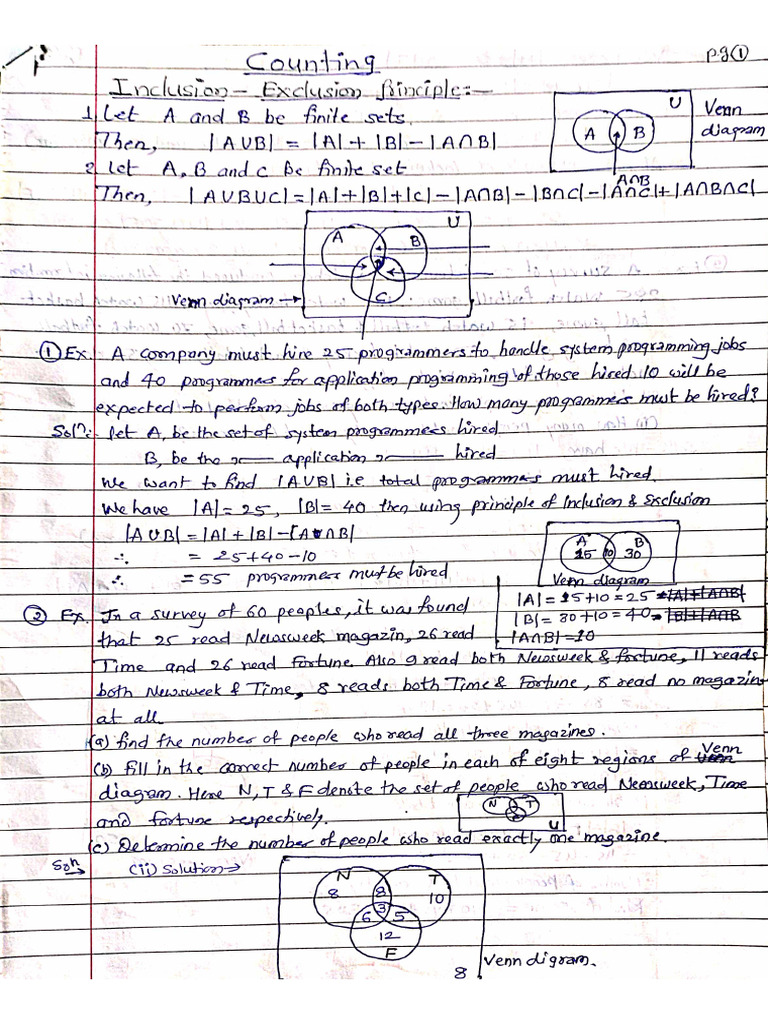 Counting
p.g ①
Inclusion - Exclusion Principle:-
1. Let A and B be finite sets.
Then, |A∪B| = |A|+|B|-|A∩B|
U
A
B
Venn
diagram
A∩B
2. Let A, B and C be finite set
Then, |A∪B∪C| = |A|+|B|+|C|-|A∩B|-|B∩C|-|A∩C|+|A∩B∩C|
U
A
B
C
Venn diagram→
① Ex. A company must hire 25 programmers to handle system programming jobs
and 40 programmers for application programming of those hired 10 will be
expected to perform jobs of both types. How many programmers must be hired?
Solⁿ:- let A, be the set of system programmers hired
B, be the — application — hired
We want to find |A∪B| i.e total programmers must hired.
We have |A|=25, |B|= 40 then using principle of Inclusion & Exclusion
|A∪B| = |A|+|B|-|A∩B|
∴ = 25+40-10
∴ = 55 programmer must be hired
A
B
15
10
30
Venn diagram
|A| = 15+10 = 25
|B| = 30+10 = 40
|A∩B| = 10
② Ex. In a survey of 60 peoples, it was found
that 25 read Newsweek magazin, 26 read
Time and 26 read fortune. Also 9 read both Newsweek & fortune, 11 reads
both Newsweek & Time, 8 reads both Time & Fortune, 8 read no magazin
at all.
(a) find the number of people who read all three magazines.
(b) fill in the correct number of people in each of eight regions of Venn
diagram. Here N, T & F denote the set of people who read Newsweek, Time
and fortune respectively.
N
T
F
U
(c) Determine the number of people who read exactly one magazine.
Solⁿ
(ii) Solution→
N
T
8
8
10
3
6
5
12
F
8
Venn digram.